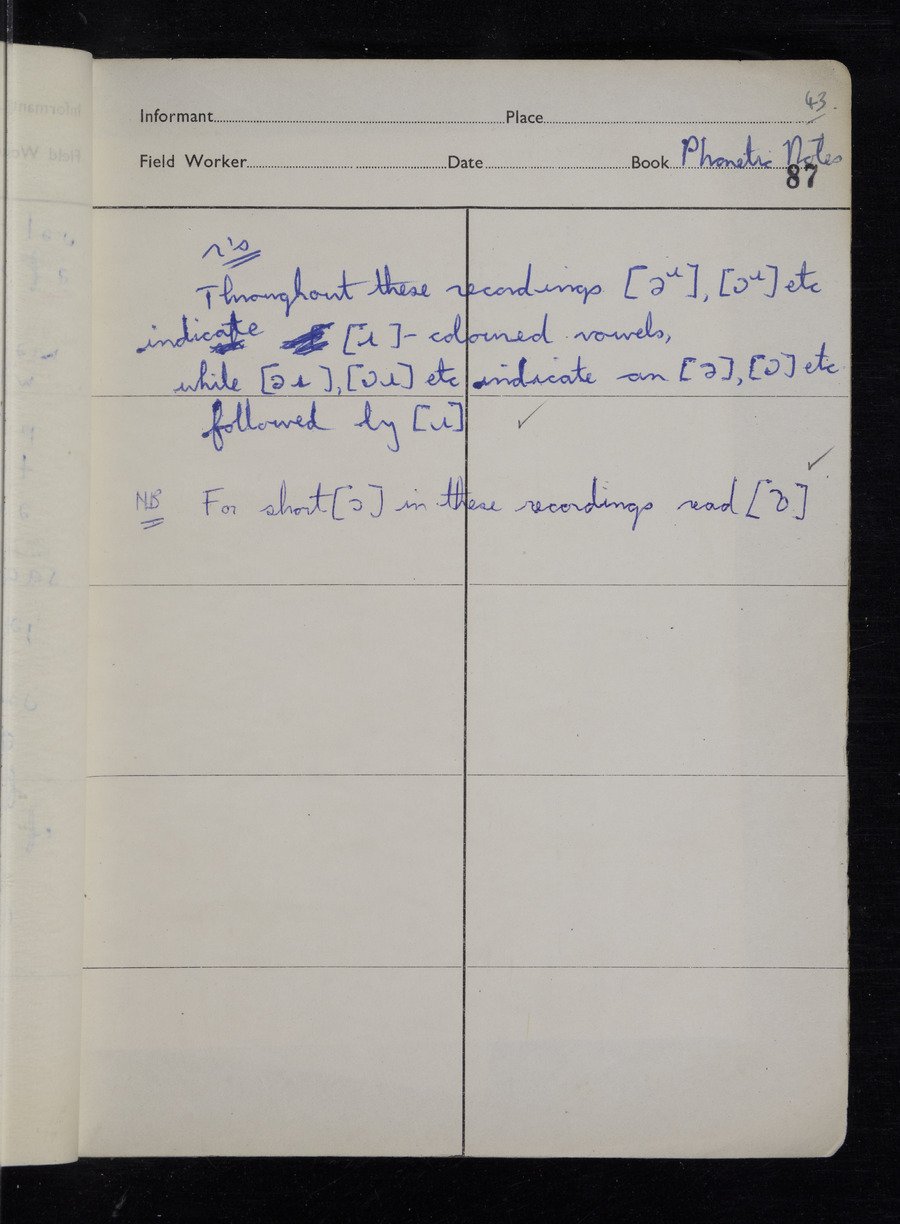 43
Informant Place
Field Worker Date Book Phonetic Notes
87
r's
Throughout these recordings [əɹ], [ɔɹ] etc
indicate [ɹ]-coloured vowels,
while [əɹ], [ɔɹ] etc indicate an [ə], [ɔ] etc
followed by [ɹ] ✓
✓
NB For short [ɔ] in these recordings read [ɒ]